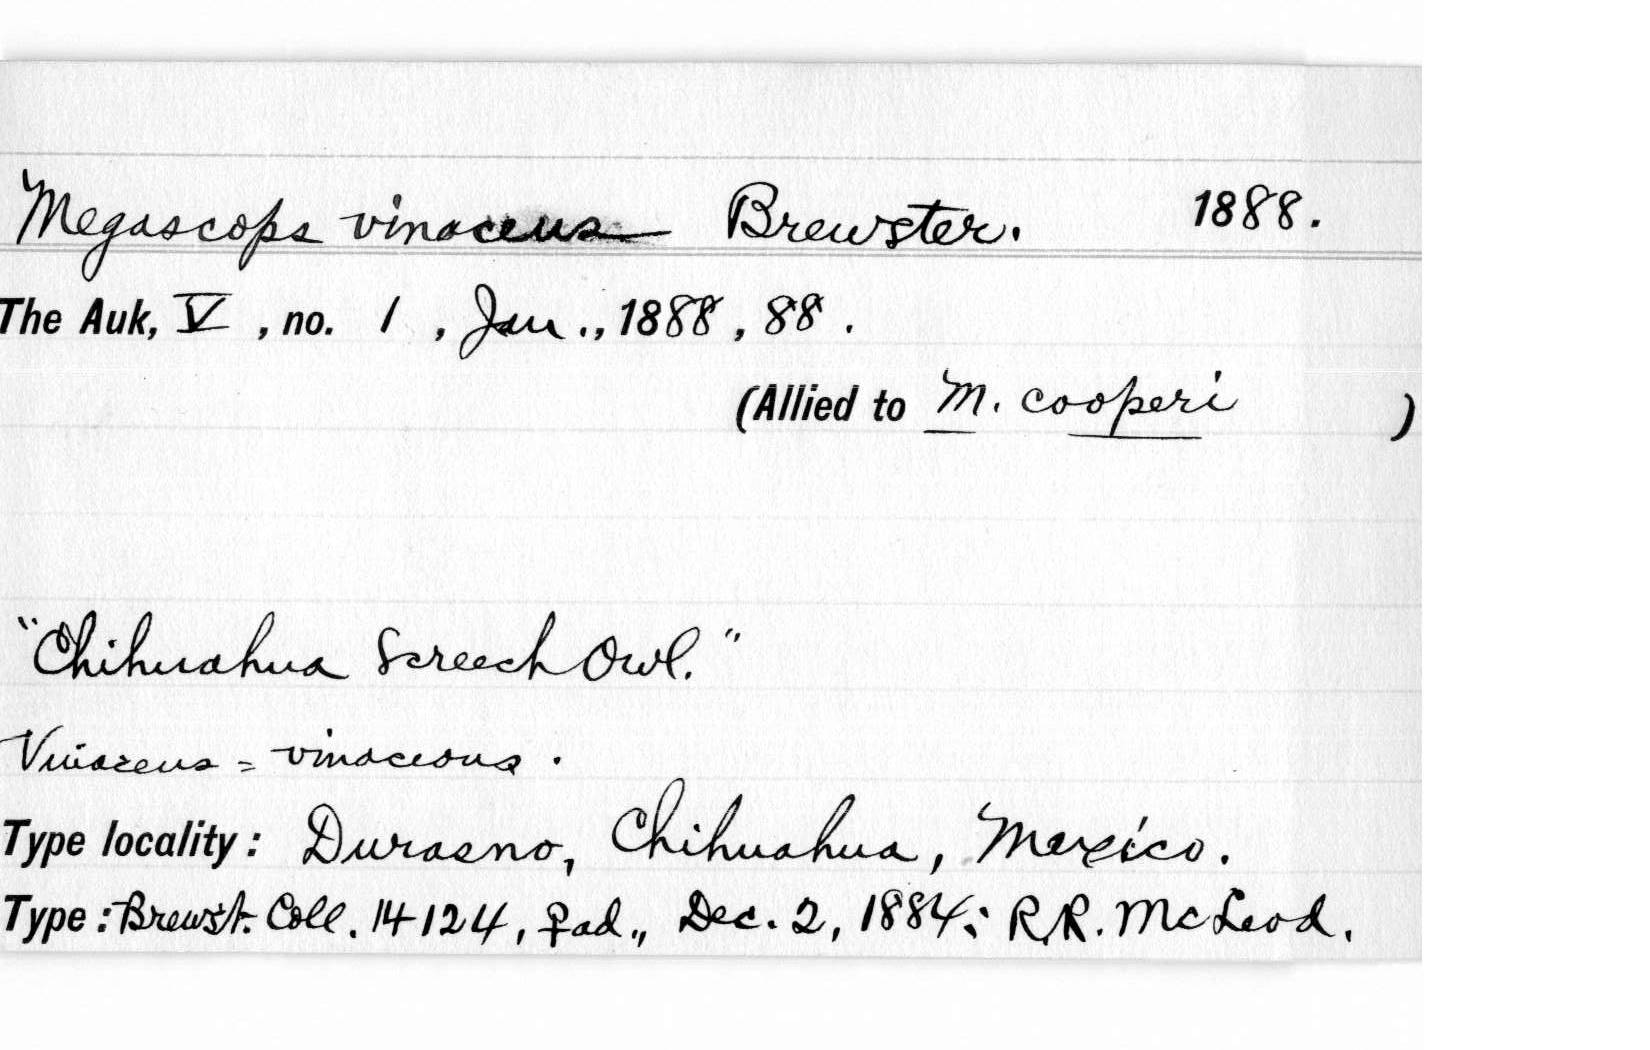 Megascops vinaceus Brewster. 1888.
The Auk, V, no. 1, Jan., 1888, 88.
(Allied to M. cooperi )
"Chihuahua Screech Owl."
Vinaceus = vinaceous.
Type locality: Durasno, Chihuahua, Mexico.
Type: Brewst. Coll. 14124, ♀ad., Dec. 2, 1884; R.R. McLeod.